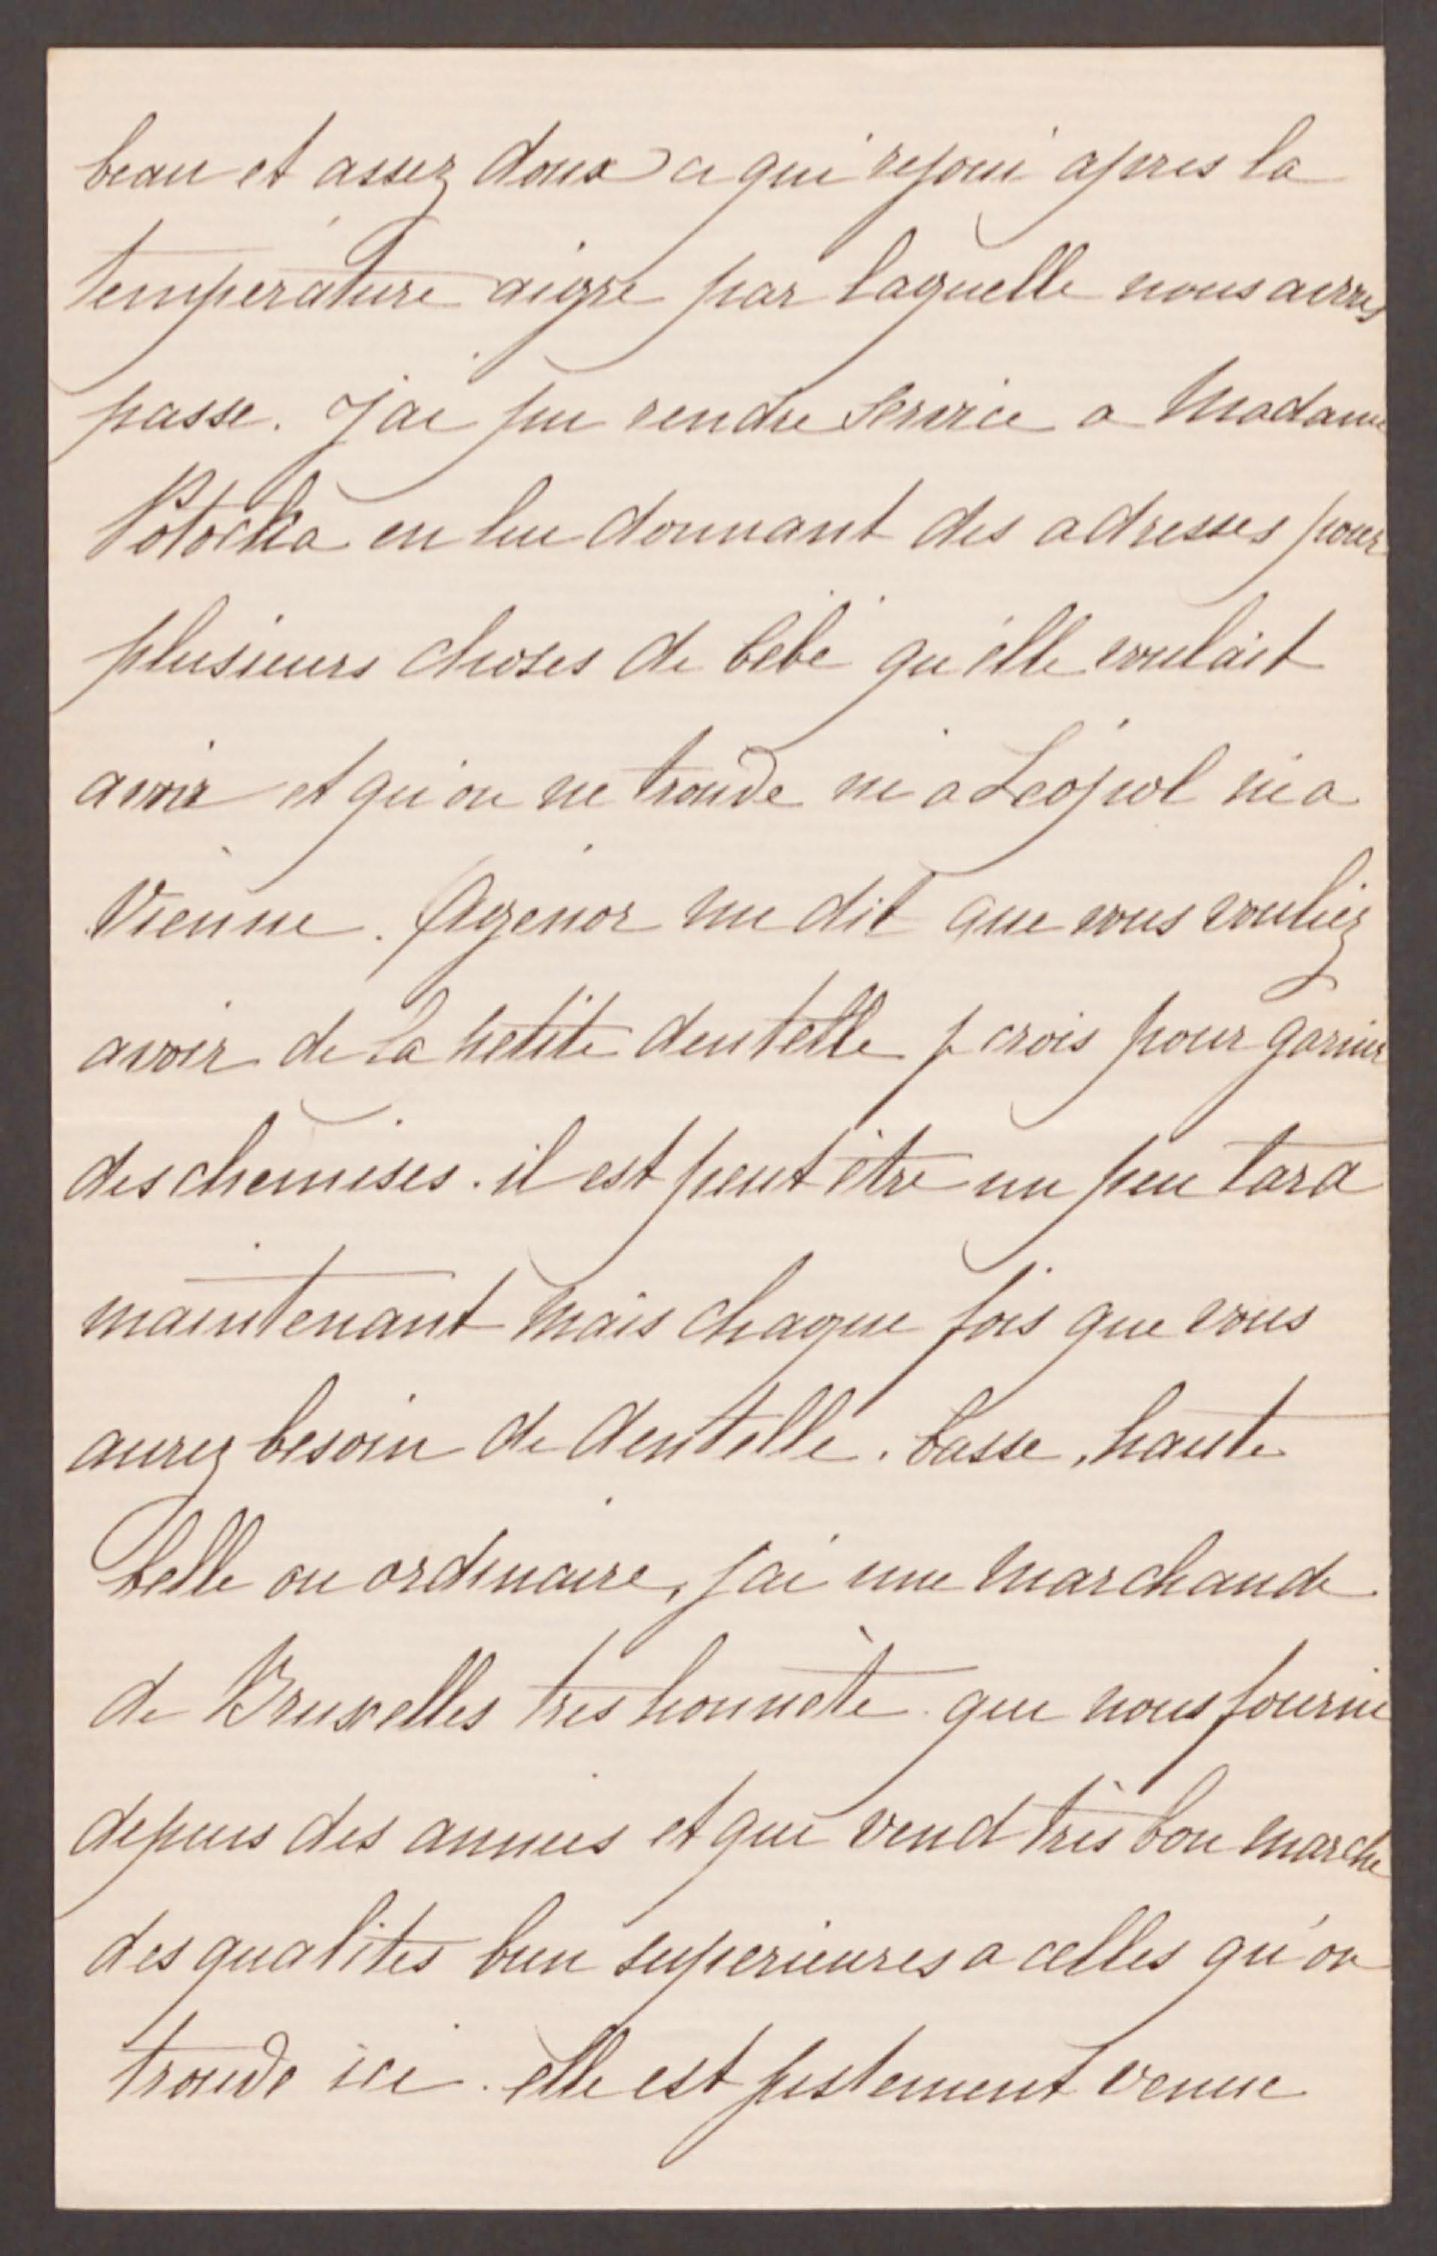 beau et assez doux ce qui rejoui apres la
température aigre par laquelle nous avons
passe. J'ai pu rendre service a Madame
Potocka en lui donnant des adresses pour
plusieurs choses de bébé qu'elle voulait
avoir et qu'on ne trouve ni a Léopol ni a
Vienne. Agenor me dit que vous vouliez
avoir de la petite dentelle je crois pour garnir
des chemises. il est peut être un peu tard
maintenant mais chaque fois que vous
aurez besoin de dentelle. basse, haute
belle ou ordinaire, j'ai une marchande
de Bruxelles tres honnète que nous fourni
depuis des annees et qui vend très bon marche
des qualites bien superieures a celles qu'on
trouve ici. elle est justement venue